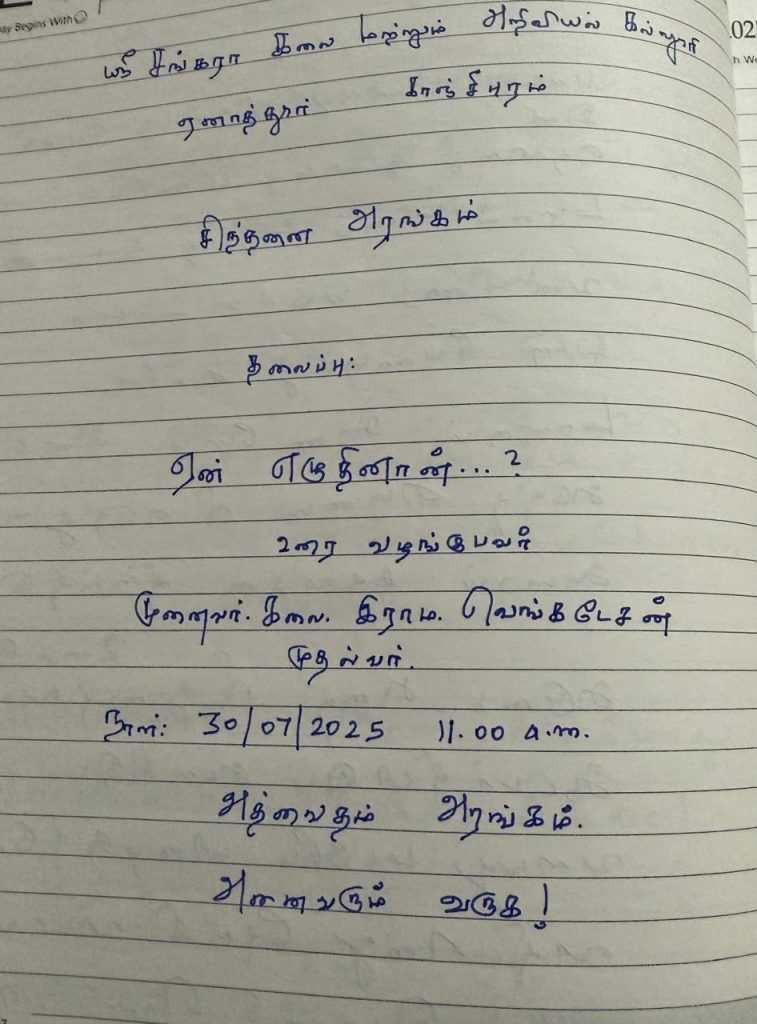 ay Begins With
ஸ்ரீ சங்கரா கலை மற்றும் அறிவியல் கல்லூரி
ஏனாத்தூர் காஞ்சிபுரம்
சிந்தனை அரங்கம்
தலைப்பு:
ஏன் எழுதினான்...?
உரை வழங்குபவர்
முனைவர். கலை. இராம. வெங்கடேசன்
முதல்வர்.
நாள்: 30/07/2025 11.00 a.m.
அத்வைதம் அரங்கம்.
அனைவரும் வருக!